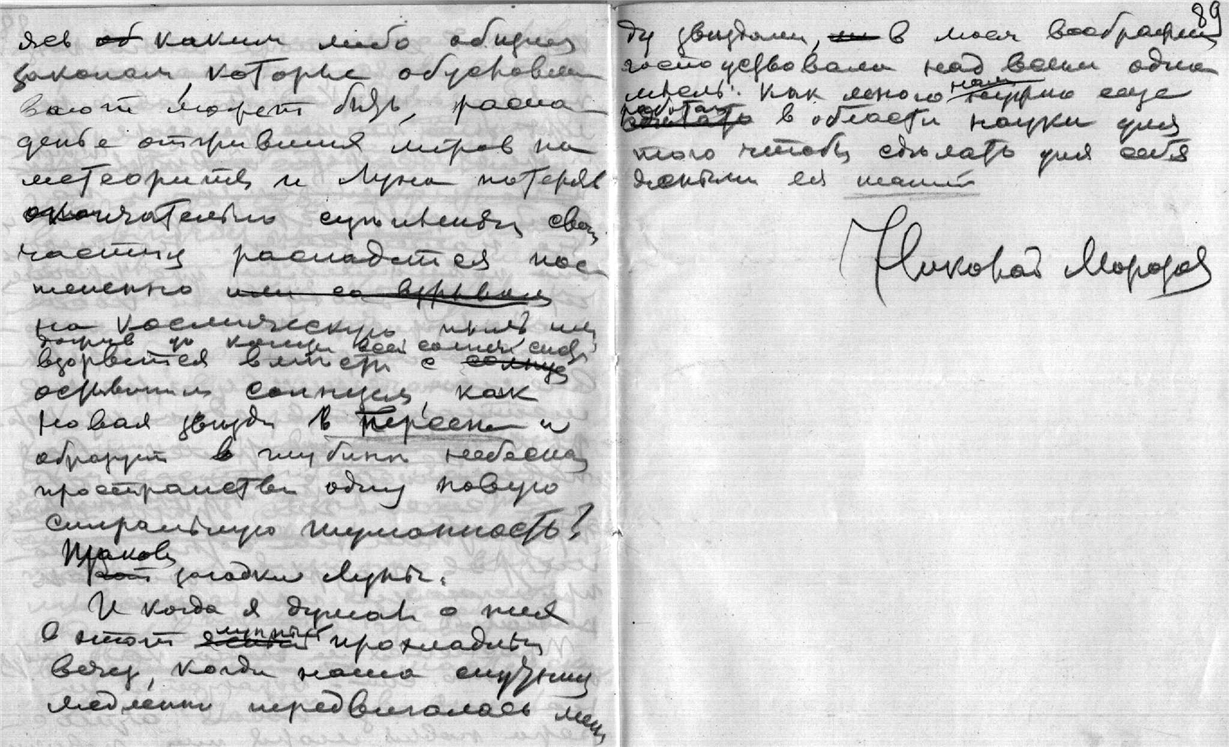 ясь каким либо общим
законам которые обусловли
вают может быть, распа
дение отживших миров на
метеориты и Луна потеряв
окончательно сцепленья своих
частиц распадется пос
тепенно или со взрывом
на космическую пыль или
дожив до конца всей солнечной
взорвется вместе с солнце
остывшим солнцем, как
новая звезда в Персее и
образует в глубине небесного
пространства одну новую
спиральную туманность?
Таковы
загадки Луны.
И когда я думал о них
в этот лунный прохладный
вечер, когда наша спутница
медленно передвигалась меж
89
ду звездами, в моем воображении
господствовала над всеми одна
мысль: Как много нам нужно еще
работать в области науки для
того чтобы сделать для себя
ея
Николай Морозов